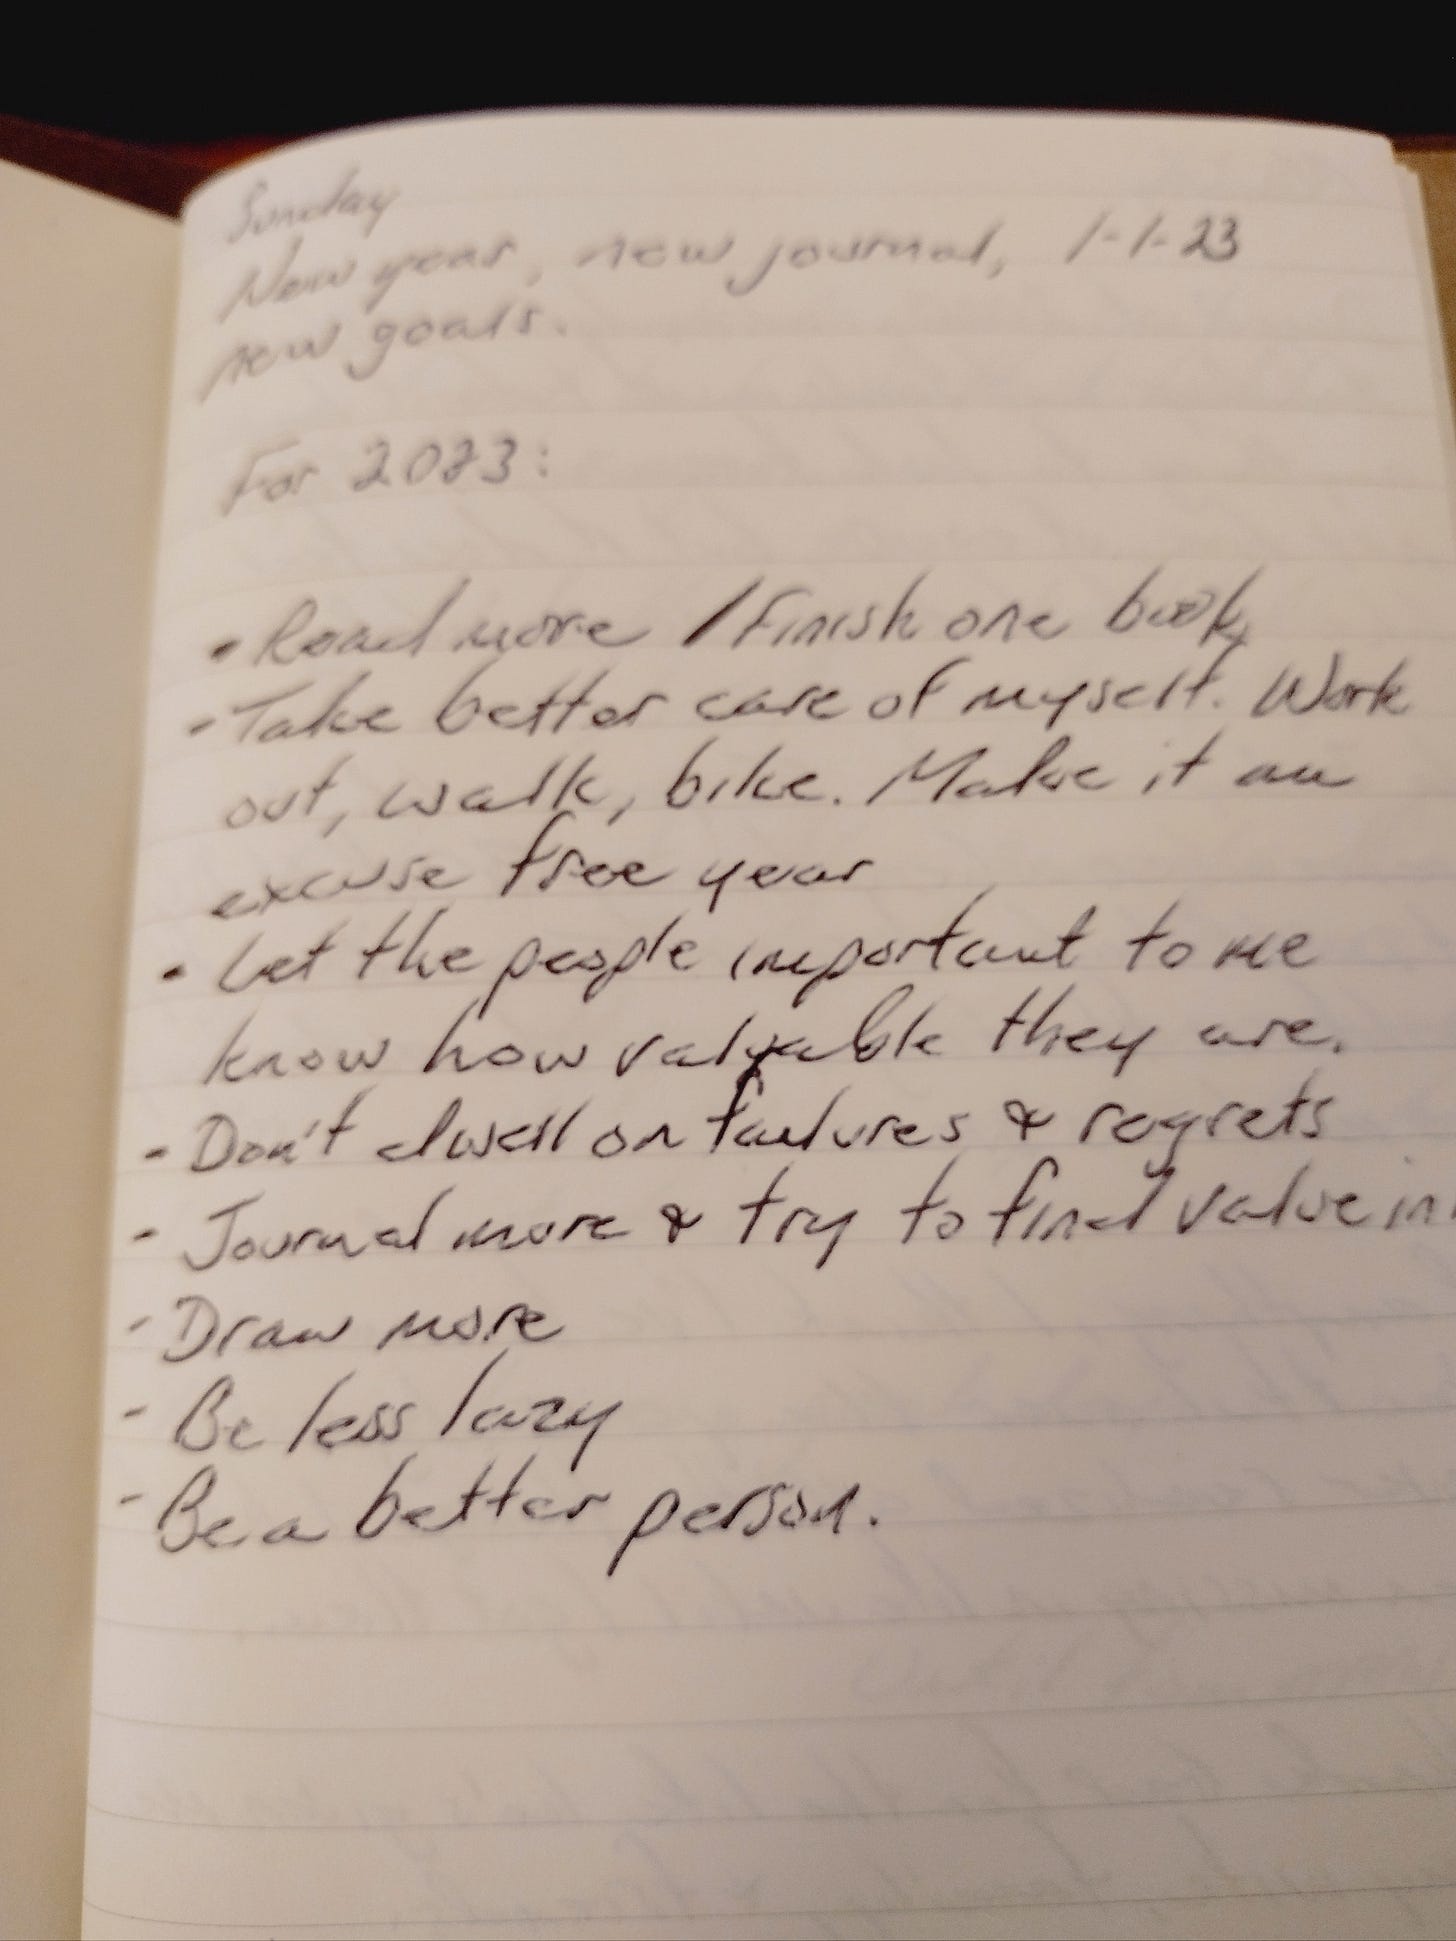 Sunday
New year, new journal, 1-1-23
new goals.
For 2023:
• Read more / Finish one book
- Take better care of myself. Work
out, walk, bike. Make it an
excuse free year
• Let the people important to me
know how valuable they are.
- Don't dwell on failures & regrets
- Journal more & try to find value in
- Draw more
- Be less lazy
- Be a better person.